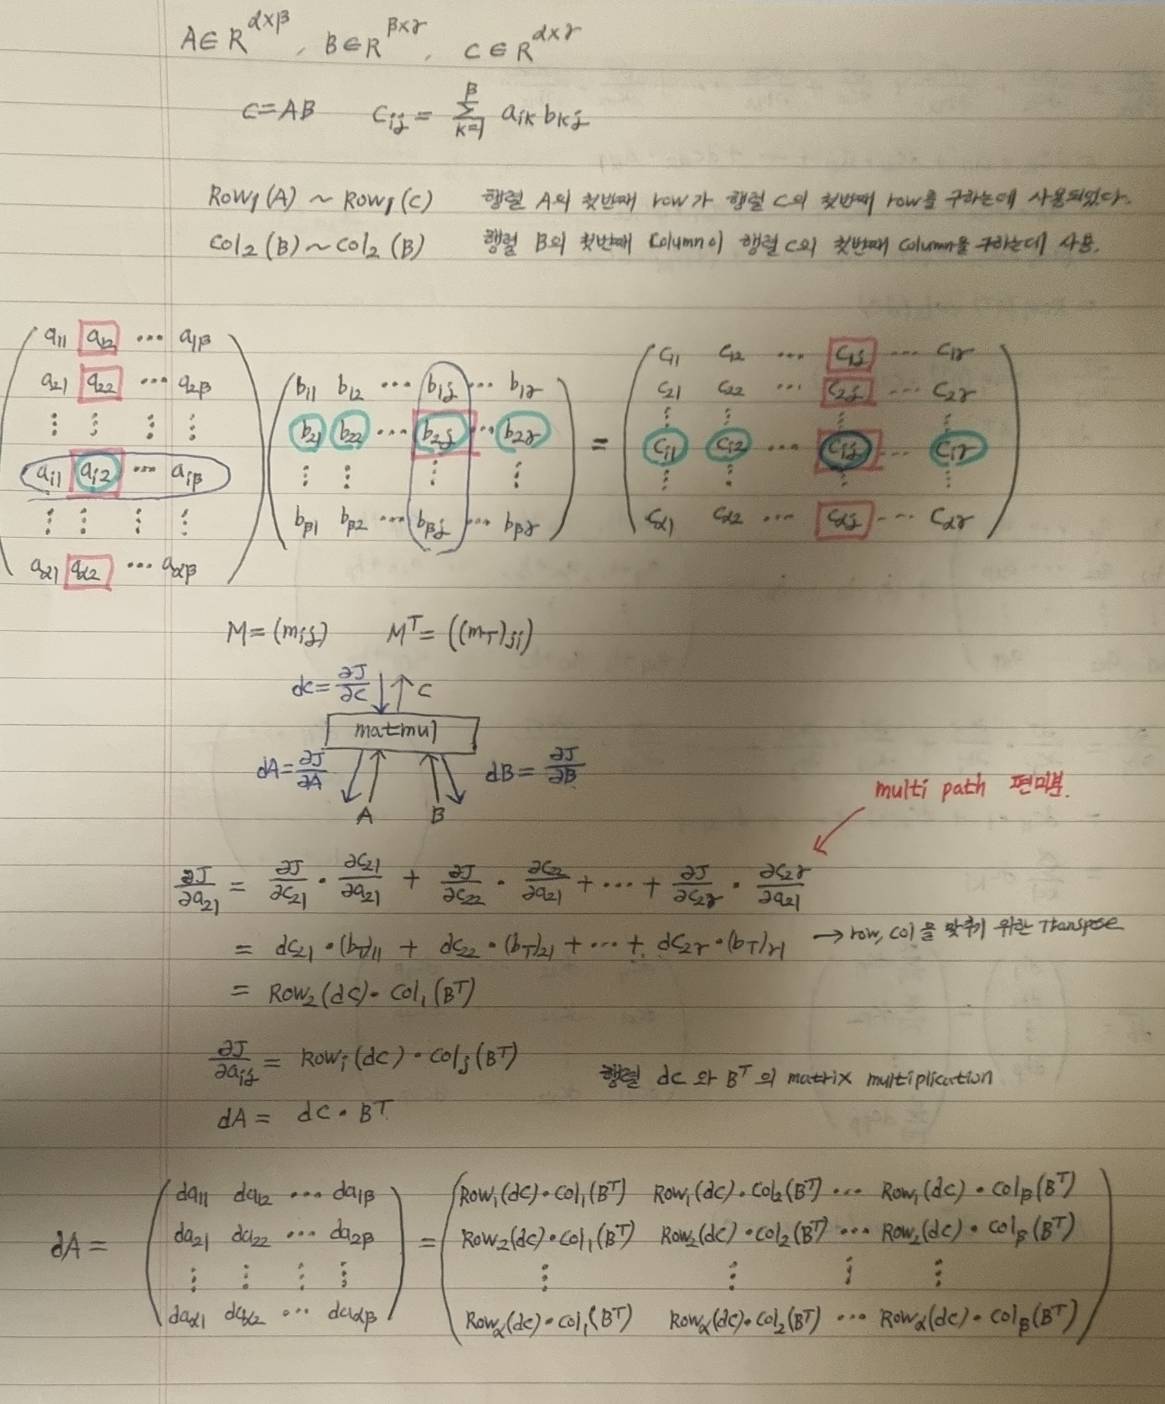 A∈R^{α×β}, B∈R^{β×γ}, C∈R^{α×γ}
C=AB  C_{ij} = Σ_{k=1}^{β} a_{ik} b_{kj}
Row₁(A) ~ Row₁(C)  행렬 A의 첫번째 row가 행렬 C의 첫번째 row를 구하는데 사용되었다.
Col₂(B) ~ Col₂(B)  행렬 B의 첫번째 Column이 행렬 C의 첫번째 Column을 구하는데 사용.
a₁₁ a₁₂ ⋯ a_{1β}  c₁₁ c₁₂ ⋯ c_{1j} ⋯ c_{1γ}
a₂₁ a₂₂ ⋯ a_{2β}  b₁₁ b₁₂ ⋯ b_{1j} ⋯ b_{1γ}  c₂₁ c₂₂ ⋯ c_{2j} ⋯ c_{2γ}
⋮ ⋮ ⋮ ⋮  b₂₁ b₂₂ ⋯ b_{2j} ⋯ b_{2γ} = ⋮ ⋮ ⋮ ⋮
a_{i1} a_{i2} ⋯ a_{iβ}  ⋮ ⋮ ⋮ ⋮  c_{i1} c_{i2} ⋯ c_{ij} ⋯ c_{iγ}
⋮ ⋮ ⋮ ⋮  b_{β1} b_{β2} ⋯ b_{βj} ⋯ b_{βγ}  ⋮ ⋮ ⋮ ⋮
a_{α1} a_{α2} ⋯ a_{αβ}  c_{α1} c_{α2} ⋯ c_{αj} ⋯ c_{αγ}
M = (m_{ij})  M^T = ((m_T)_{ji})
dC = ∂J/∂C ↓ ↑ C
matmul
dA = ∂J/∂A  dB = ∂J/∂B
A  B
multi path 편미분.
∂J/∂a₂₁ = ∂J/∂c₂₁ · ∂c₂₁/∂a₂₁ + ∂J/∂c₂₂ · ∂c₂₂/∂a₂₁ + ⋯ + ∂J/∂c_{2γ} · ∂c_{2γ}/∂a₂₁
= dc₂₁·(b_T)₁₁ + dc₂₂·(b_T)₂₁ + ⋯ + dc_{2γ}·(b_T)_{γ1}  → row, col을 맞추기 위한 Transpose
= Row₂(dC)·Col₁(B^T)
∂J/∂a_{ij} = Row_i(dC)·Col_j(B^T)
행렬 dC 와 B^T 의 matrix multiplication
dA = dC·B^T
da₁₁ da₁₂ ⋯ da_{1β}  Row₁(dC)·Col₁(B^T) Row₁(dC)·Col₂(B^T) ⋯ Row₁(dC)·Col_β(B^T)
dA = da₂₁ da₂₂ ⋯ da_{2β} = Row₂(dC)·Col₁(B^T) Row₂(dC)·Col₂(B^T) ⋯ Row₂(dC)·Col_β(B^T)
⋮ ⋮ ⋮ ⋮  ⋮ ⋮ ⋮ ⋮
da_{α1} da_{α2} ⋯ da_{αβ}  Row_α(dC)·Col₁(B^T) Row_α(dC)·Col₂(B^T) ⋯ Row_α(dC)·Col_β(B^T)